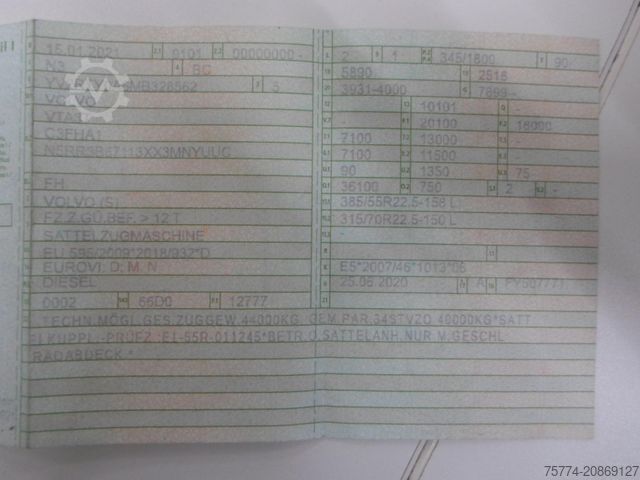 15.01.2021 2.1 0101 2.2 00000000 -
N3 4 BC
MB328562 3 5
VOLVO
VTA3
C3FHA1
FH
VOLVO (S)
FZ.Z.GÜ.BEF. > 12 T
SATTELZUGMASCHINE
EU 595/2009*2018/932*D
EUROVI; D; M, N
DIESEL
0002 56D0 12777
2 1 345/1800 90
5890 2516
3931-4000 7899
10101 -
20100 18000
7100 13000
7100 11500
90 1350 75
36100 750 2 -
385/55R22.5-158 L
315/70R22.5-150 L
-
E5*2007/46*1013*06
25.06.2020 A
TECHN.MÖGL.GES.ZUGGEW.44000KG, GEM.PAR.34STVZO 40000KG*SATT
ELKUPPL.-PRUEFZ.:E1-55R-011245*BETR.O.SATTELANH.NUR M.GESCHL
RADABDECK.*
75774-20869127